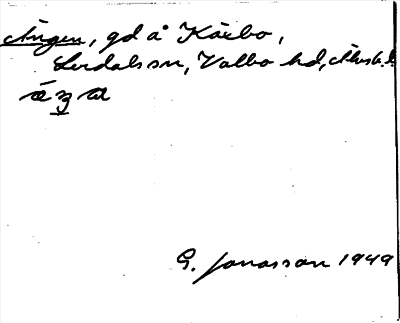 Ängen, gd å Kärbo,
Lerdals sn, Valbo hd, Älvsb. l.
G. Jonasson 1949